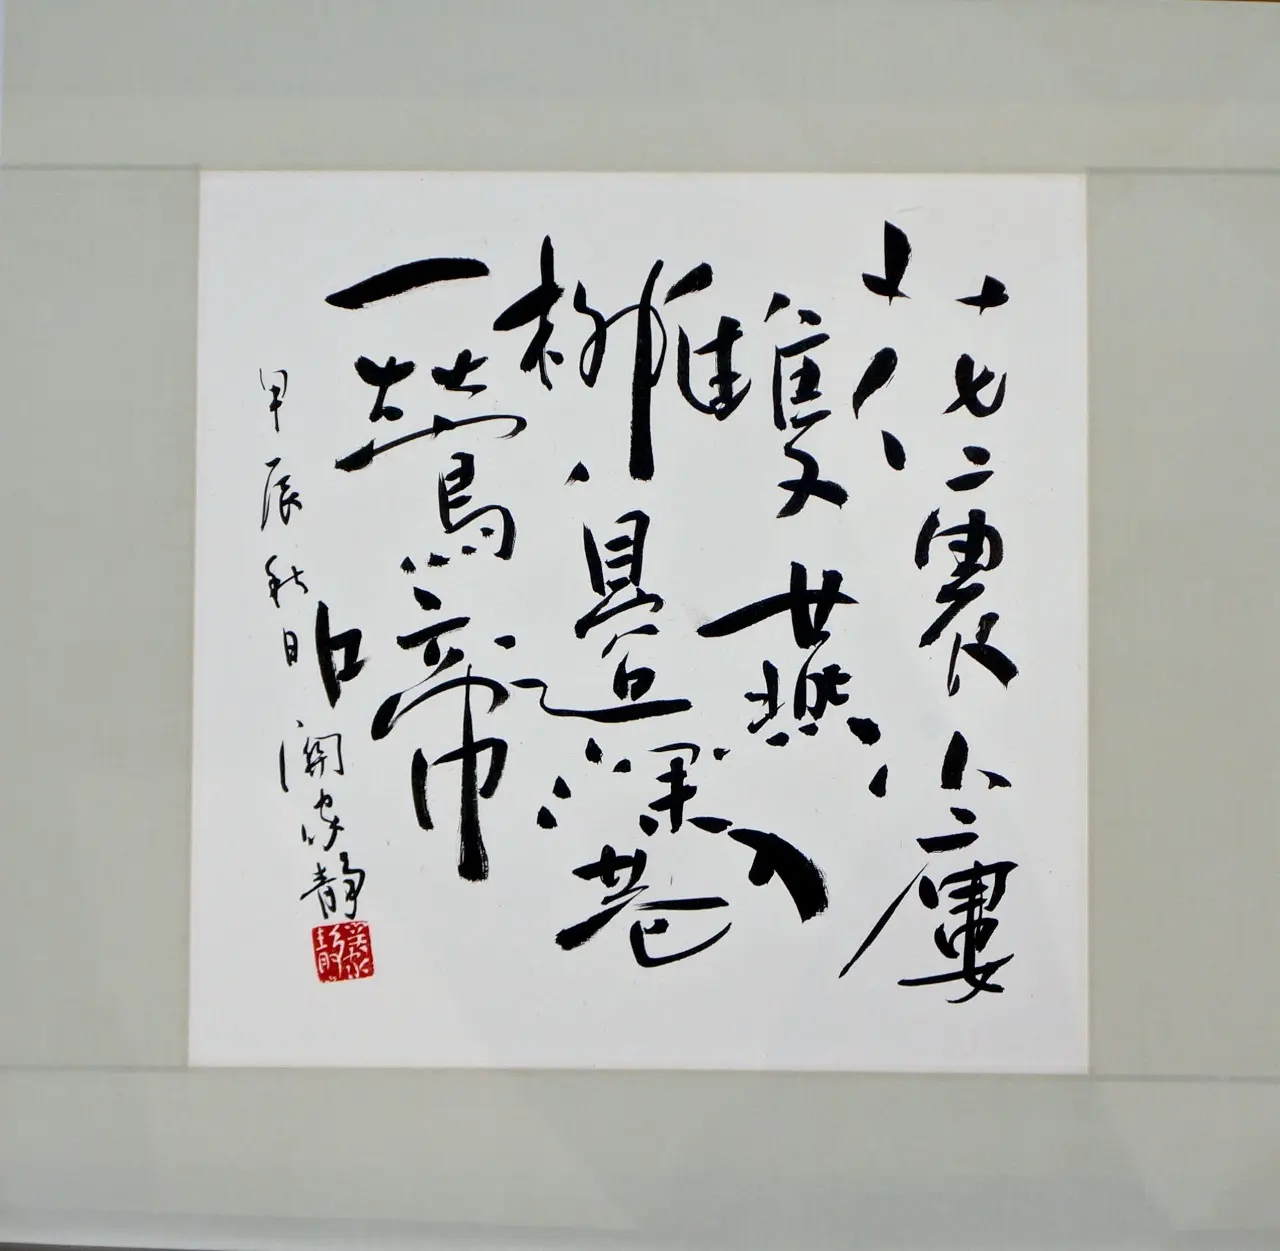 花裏小樓
雙燕入
柳邊深巷
一鶯啼
甲辰秋日
關家靜